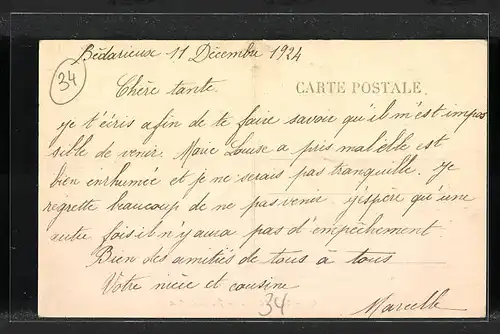 Bédarieux 11 Décembre 1924
34
Chère tante.
CARTE POSTALE
je t'écris afin de te faire savoir qu'il m'est impos
sible de venir. Marie Louise a pris mal elle est
bien enrhumée et je ne serais pas tranquille. je
regrette beaucoup de ne pas venir j'éspère qu'une
autre fois il n'y aura pas d'empêchement.
Bien des amitiés de tous à tous
Votre nièce et cousine
34
Marcelle